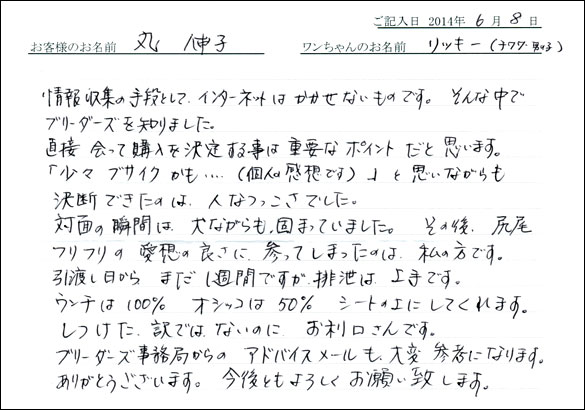 ご記入日 2014年 6月 8日
お客様のお名前 丸 伸子 ワンちゃんのお名前 リッキー(チワワ・男の子)
情報収集の手段として、インターネットはかかせないものです。そんな中で
ブリーダーズを知りました。
直接会って購入を決定する事は重要なポイントだと思います。
「少々ブサイクかも…(個人の感想です)」と思いながらも
決断できたのは、人なつっこさでした。
対面の瞬間は、犬ながらも、固まっていました。その後、尻尾
フリフリの愛想の良さに、参ってしまったのは、私の方です。
引渡し日から まだ1週間ですが、排泄は、上手です。
ウンチは100% オシッコは50% シートの上にしてくれます。
しつけた、訳では、ないのに、お利口さんです。
ブリーダーズ事務局からの アドバイスメールも、大変 参考になります。
ありがとうございます。今後ともよろしくお願い致します。